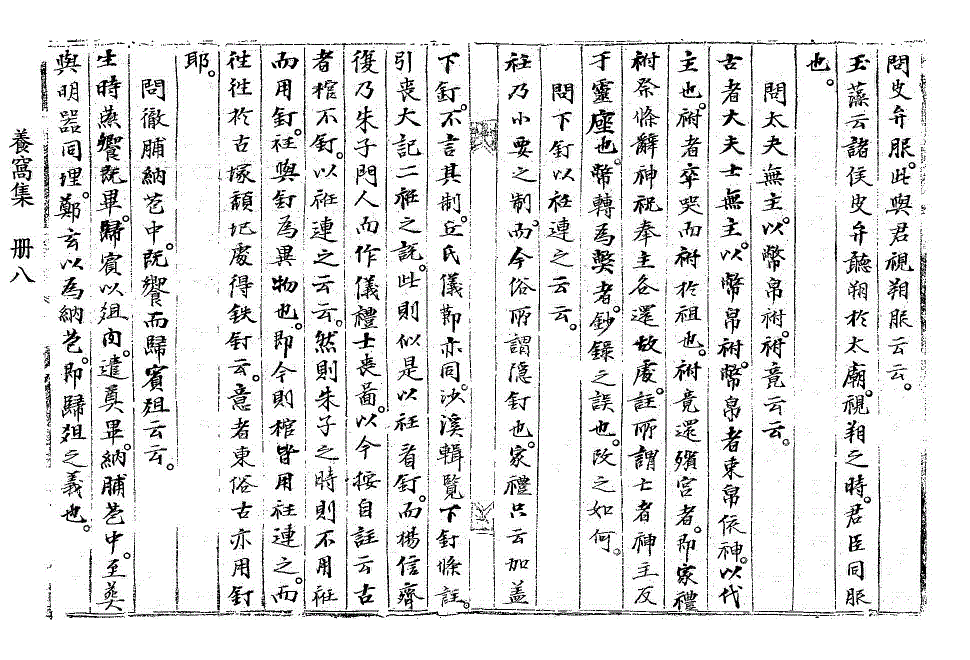 問皮弁服。此與君視朔服云云。
玉藻云諸侯皮弁聽朔於太廟。視朔之時。君臣同服
也。
問太夫無主。以幣帛祔。祔竟云云。
古者大夫士無主。以幣帛祔。幣帛者束帛依神。以代
主也。祔者卒哭而祔於祖也。祔竟還殯宮者。卽家禮
祔祭條辭神祝奉主各還故處。註所謂士者神主反
于靈座也。幣轉爲獘者。鈔錄之誤也。改之如何。
問下釘以衽連之云云。
衽乃小要之制。而今俗所謂隱釘也。家禮只云加盖
下釘。不言其制。丘氏儀節亦同。沙溪輯覽下釘條註。
引喪大記二衽之說。此則似是以衽看釘。而楊信齋
復乃朱子門人而作儀禮士喪啚。以今按自註云古
者棺不釘。以衽連之云云。然則朱子之時則不用衽
而用釘。衽與釘爲異物也。卽今則棺皆用衽連之。而
往往於古塚頹圮處得鉄釘云。意者東俗古亦用釘
耶。
問徹脯納苞中。旣饗而歸賓俎云云。
生時燕饗旣畢。歸賓以俎肉。遣奠畢。納脯苞中。至葬
與明器同埋。鄭玄以爲納苞。卽歸俎之義也。
養窩集 册八